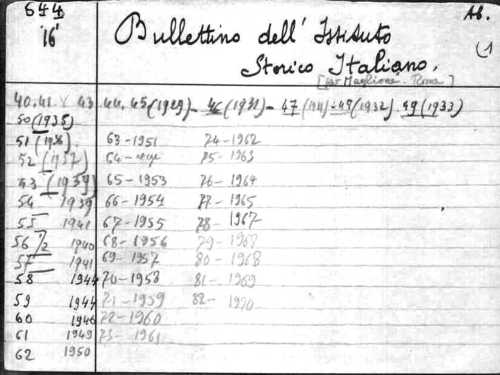 644 Bullettino dell' Istituto Ab.
16 Storico Italiano. (1
[ Maglione - Roma]
40.41 x 43 44.45 (1929) - 46 (1931) - 47 - 48 (1932) - 49 (1933)
50 (1935)
51 63-1951 74-1962
52 (1937) 64- 75-1963
(1939) 65-1953 76-1964
54 1939 66-1954 77-1965
55 1941 67-1955 78-1967
56 1/2 1940 68-1956 79-
57 1941 69-1957 80-1968
58 1944 70-1958 81-1969
59 1944 71-1959 82-1970
60 1946 72-1960
61 1949 73-1961
62 1950